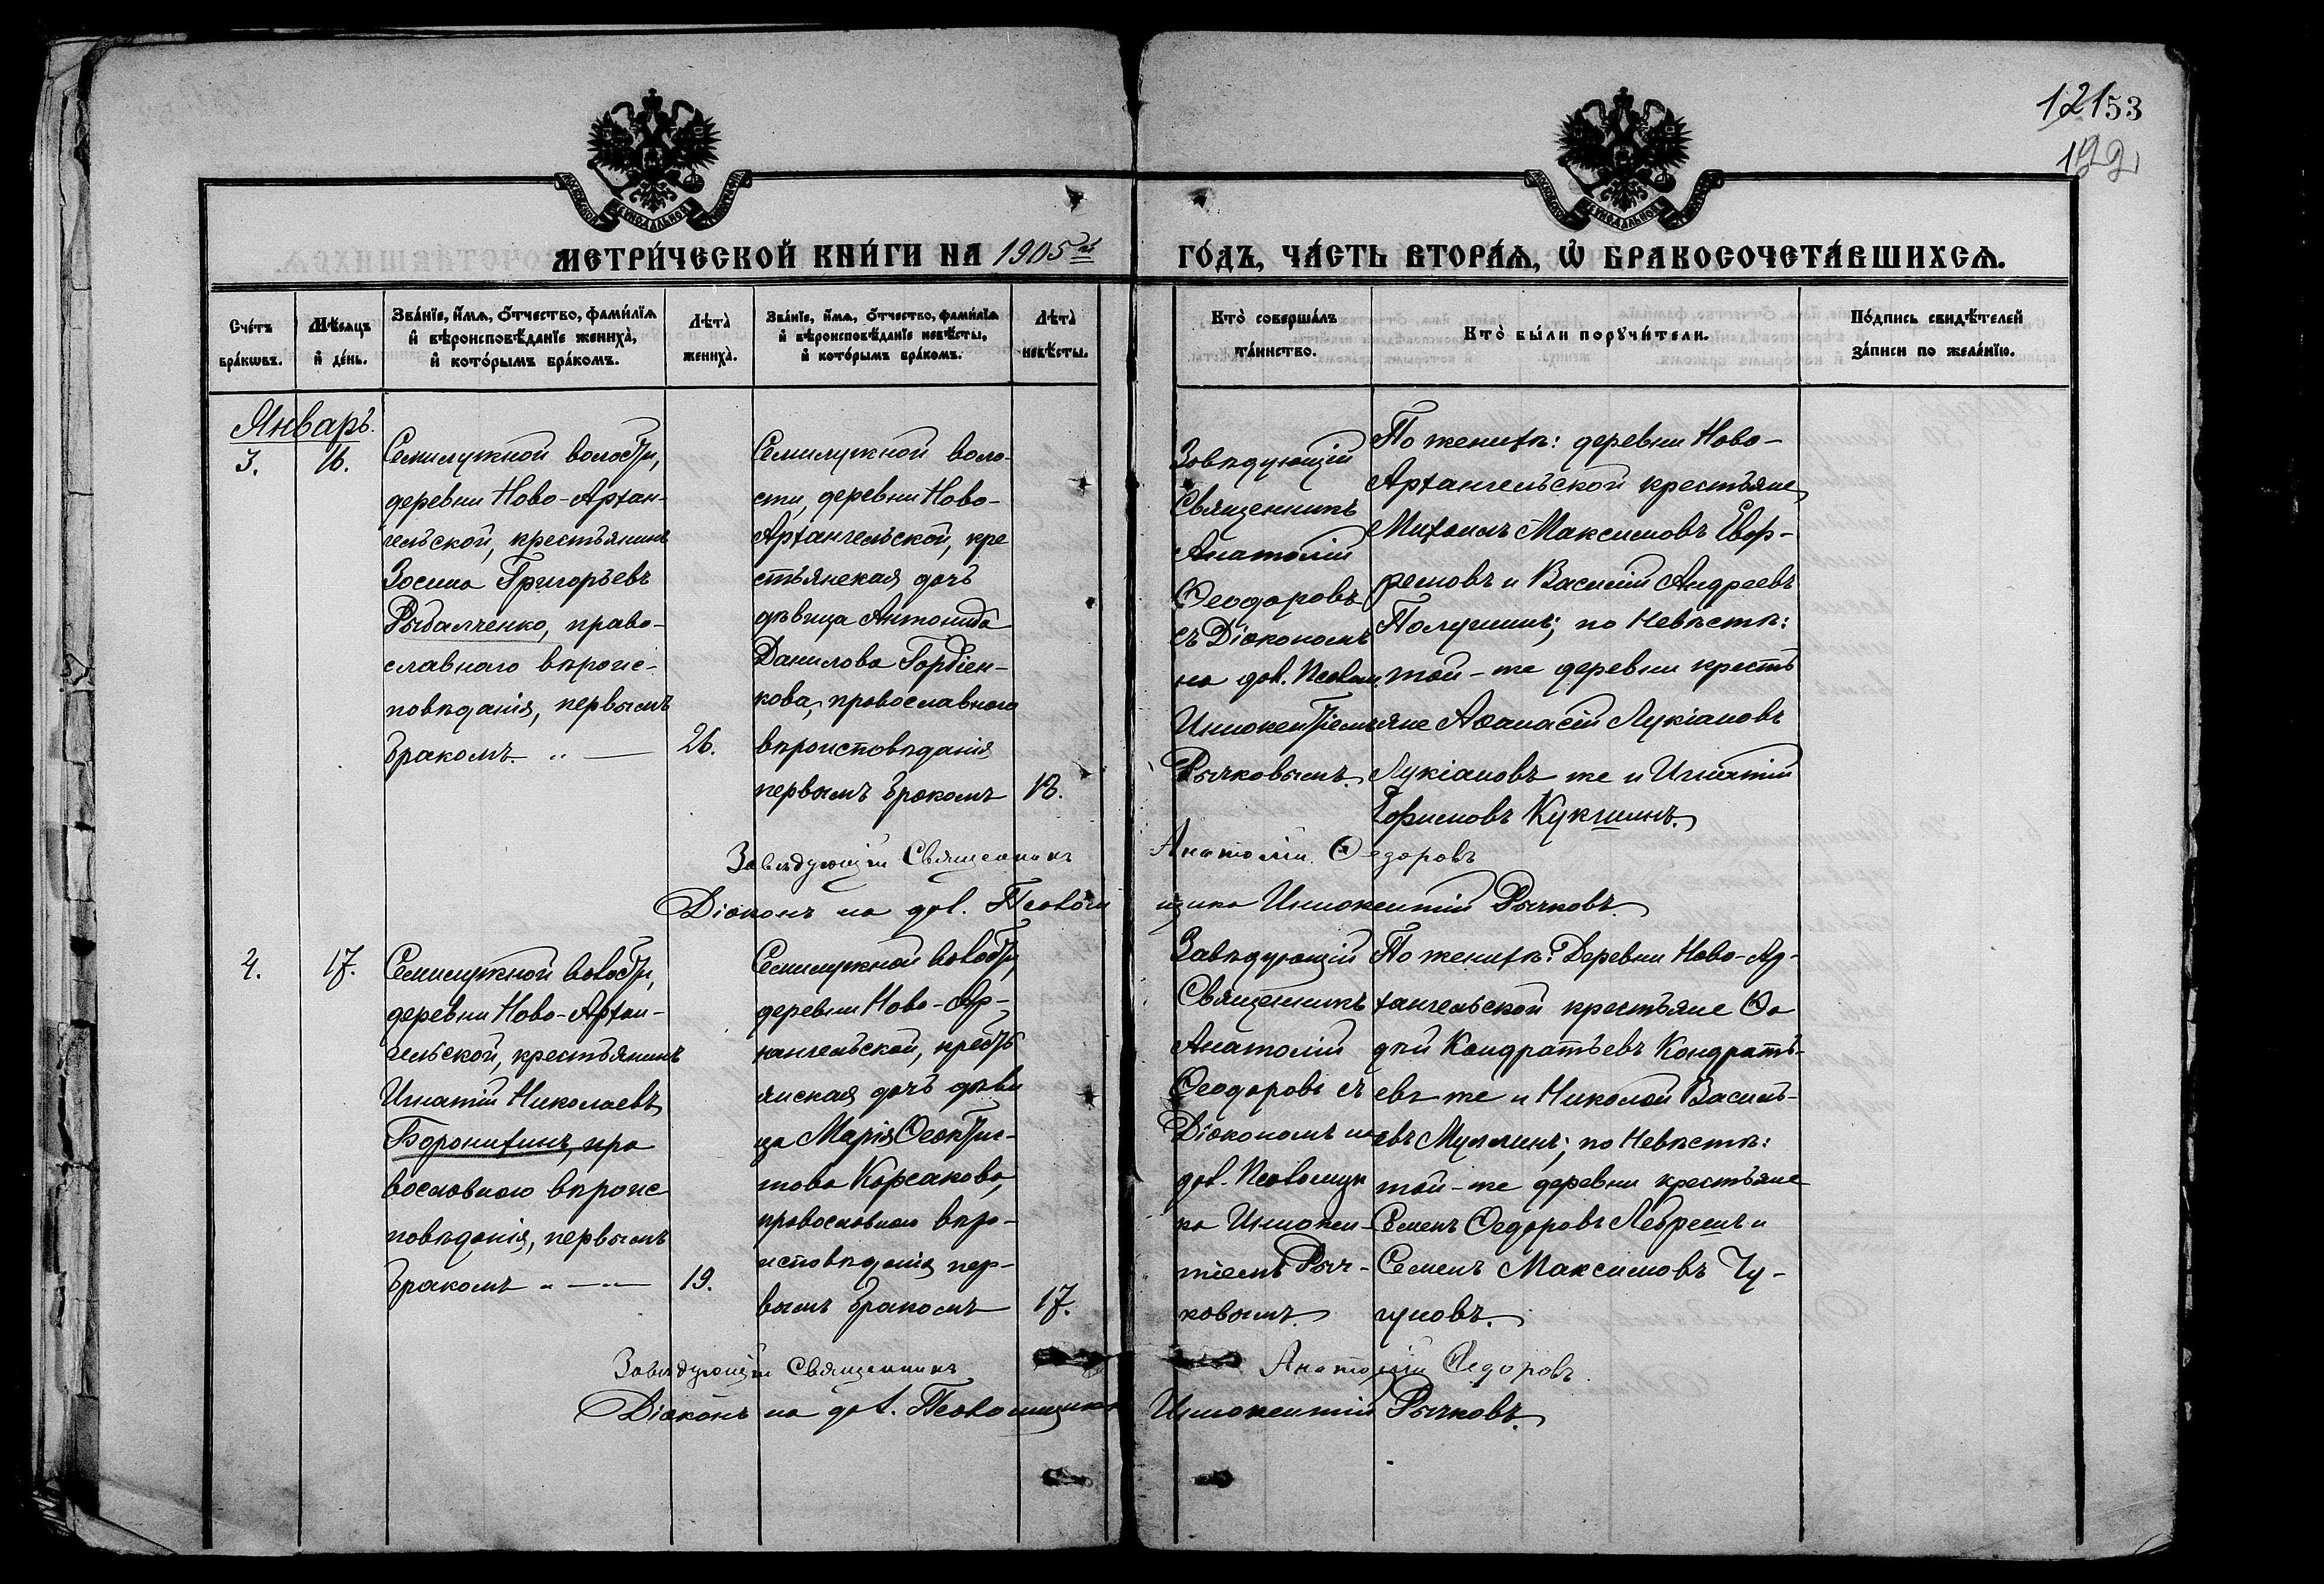 12153
122
МЕТРИ́ЧЕСКОЙ КНИ́ГИ НА 1905й
ГО́ДЪ, ЧА́СТЬ ВТОРА́Ѧ, Ѡ҆ БРАКОСОЧЕТА́ВШИХСѦ.
Сче́тъ бра́кѡвъ.
Мѣ́сяцъ и҆ де́нь.
Зва́нїе, и҆́мѧ, ѻ҆́тчество, фами́лїѧ
и҆ вѣроисповѣ́данїе жениха̀,
и҆ кото́рымъ бра́комъ.
Лѣта̀
жениха̀.
Зва́нїе, и҆́мѧ, ѻ҆́тчество, фами́лїѧ
и҆ вѣроисповѣ́данїе невѣ́сты,
и҆ кото́рымъ бра́комъ.
Лѣта̀
невѣ́сты.
Кто̀ соверша́лъ
та́инство.
Кто̀ бы́ли порꙋчи́тели.
По́дпись свидѣ́телей
за́писи по жела́нїю.
Январь.
3.
16.
Семилужной волости,
деревни Ново-Архан-
гельской, крестьянинъ
Зосима Григорьевъ
Рыбалченко, право-
славнаго вѣроис-
повѣданія, первымъ
бракомъ. „ —
26.
Семилужной воло-
сти, деревни Ново-
Архангельской, кре
стьянская дочь
дѣвица Антонида
Данилова Гордіен-
кова, православнаго
вѣроисповѣданія
первымъ бракомъ
18.
Завѣдующій
Священникъ
Анатолій
Ѳеодоровъ
съ Діакономъ
на дол. Псалом.
Иннокентіемъ
Рычковымъ.
По женихѣ: деревни Ново-
Архангельской крестьяне
Михаилъ Максимовъ Ефр-
ремовъ и Василій Андреевъ
той-же деревни кресть
яне Аѳанасій Лукіановъ
Лукіановъ же и Игнатій
Ефимовъ Кукшинъ.
Завѣдующій Священникъ Анатолій Ѳедоровъ
Діаконъ на дол. Псалом щика Иннокентій Рычковъ.
4.
17.
Семилужной волости,
деревни Ново-Архан-
гельской, крестьянинъ
Игнатій Николаевъ
Боронихинъ, пра
вославнаго вѣроис
повѣданія, первымъ
бракомъ „ — „ —
19.
Семилужной волости,
деревни Ново-Ар-
хангельской, кресть
янская дочь дѣви
ца Марія Ѳеокти-
това Корсакова,
православнаго вѣро-
исповѣданія пер-
вымъ бракомъ
17.
Завѣдующій
Священникъ
Анатолій
Ѳеодоровъ съ
Діакономъ на
дол. Псаломщи
ка Иннокен-
тіемъ Рыч-
ковымъ.
По женихѣ: Деревни Ново-Ар-
хангельской крестьяне Ѳа
дѣй Кондратьевъ Кондрать-
евъ же и Николай Василь-
той-же деревни крестьяне
Семенъ Максимовъ Чу-
гуновъ.
Завѣдующій Священникъ Анатолій Ѳедоровъ.
Діаконъ на дол. Псаломщика Иннокентій Рычковъ.